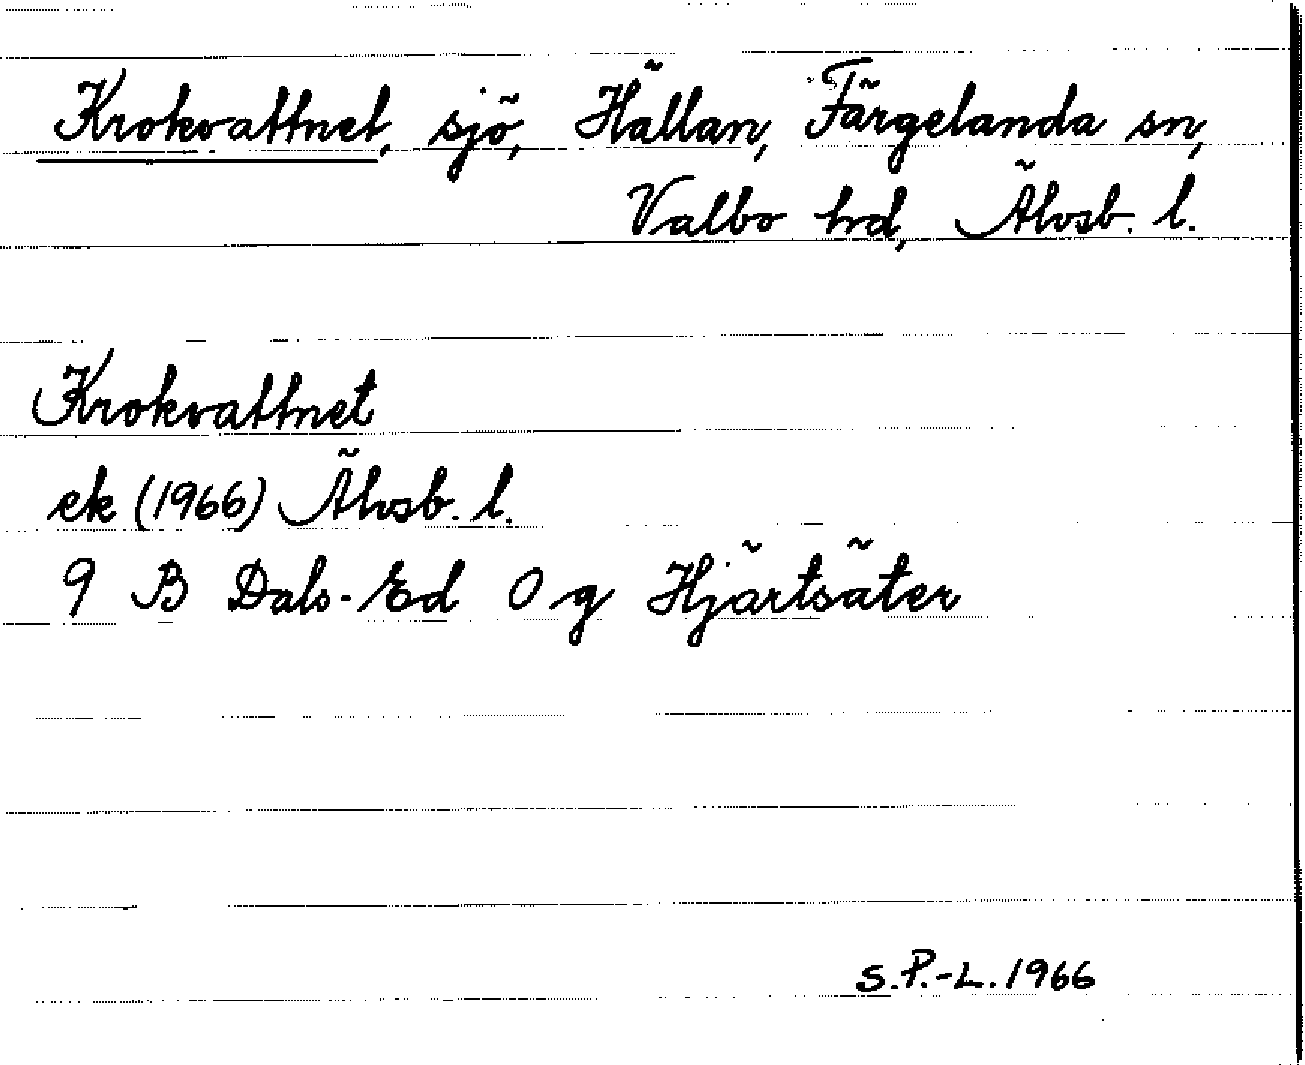 Krokvattnet, sjö, Hällan, Färgelanda sn,
Valbo hd, Älvsb. l.
Krokvattnet
ek (1966) Älvsb. l.
9 B Dals-Ed 0 g Hjärtsäter
S.P.-L. 1966